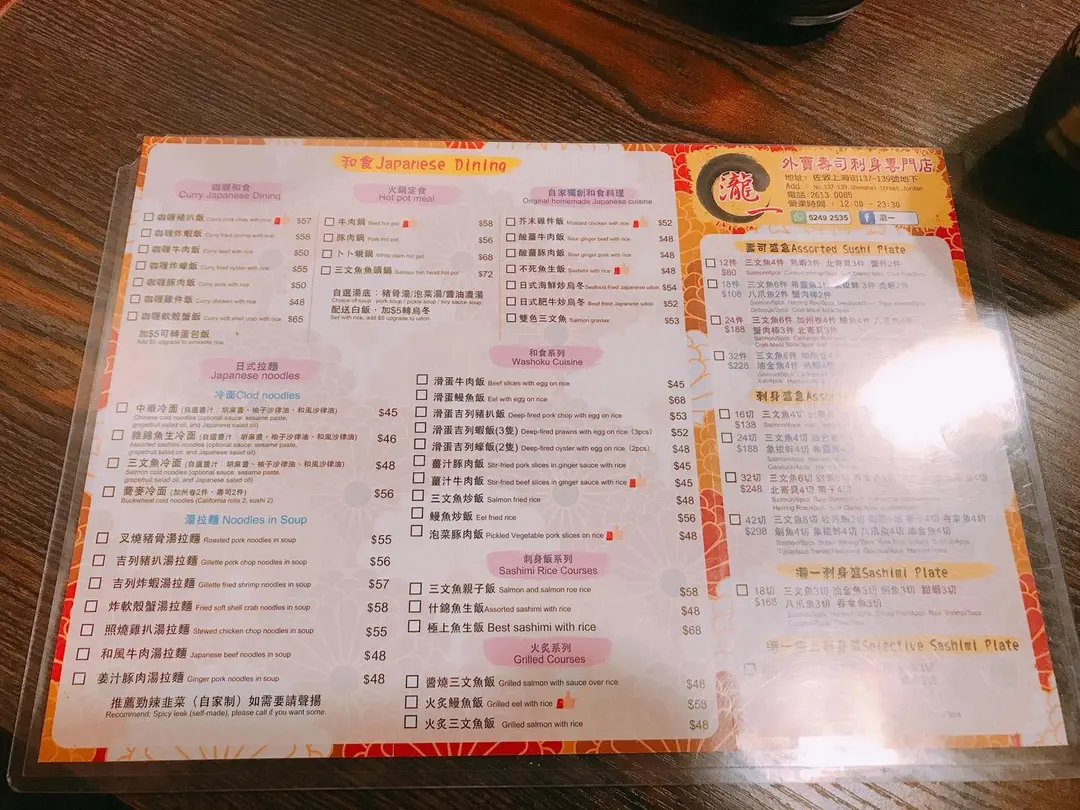 和食Japanese Dining
咖喱和食
Curry Japanese Dining
咖喱豬扒飯 Curry pork chop with rice $57
咖喱炸蝦飯 Curry fried shrimp with rice $58
咖喱牛肉飯 Curry beef with rice $50
咖喱炸蠔飯 Curry fried oyster with rice $55
咖喱豚肉飯 Curry pork with rice $50
咖喱雞件飯 Curry chicken with rice $48
咖喱軟殼蟹飯 Curry soft shell crab with rice $65
加$5可轉蛋包飯
Add $5 upgrade to omelette rice
火鍋定食
Hot pot meal
牛肉鍋 Beef hot pot $58
豚肉鍋 Pork hot pot $56
卜卜蜆鍋 White clam hot pot $68
三文魚魚頭鍋 Salmon fish head hot pot $72
自選湯底：豬骨湯/泡菜湯/醬油濃湯
Choice of soup : pork soup / pickle soup / soy sauce soup
配送白飯，加$5轉烏冬
Set with rice, add $5 upgrade to udon
自家獨創和食料理
Original homemade Japanese cuisine
芥末雞件飯 Mustard chicken with rice $52
酸薑牛肉飯 Sour ginger beef with rice $48
酸薑豚肉飯 Sour ginger pork with rice $48
不死魚生飯 Sashimi with rice $48
日式海鮮炒烏冬 Seafood fried Japanese udon $54
日式肥牛炒烏冬 Beef fried Japanese udon $52
雙色三文魚 Salmon gravlax $53
日式拉麵
Japanese noodles
冷面Clod noodles
中華冷面 (自選醬汁：胡麻醬、柚子沙律油、和風沙律油) $45
Chinese cold noodles (optional sauce: sesame paste,
grapefruit salad oil, and Japanese salad oil)
雜錦魚生冷面 (自選醬汁：胡麻醬、柚子沙律油、和風沙律油) $46
Assorted sashimi noodles (optional sauce: sesame paste,
grapefruit salad oil, and Japanese salad oil)
三文魚冷面 (自選醬汁：胡麻醬、柚子沙律油、和風沙律油) $48
Salmon cold noodles (optional sauce: sesame paste,
grapefruit salad oil, and Japanese salad oil)
蕎麥冷面 (加州卷2件、壽司2件) $56
Buckwheat cold noodles (California rolls 2, sushi 2)
湯拉麵 Noodles in Soup
叉燒豬骨湯拉麵 Roasted pork noodles in soup $55
吉列豬扒湯拉麵 Gillette pork chop noodles in soup $56
吉列炸蝦湯拉麵 Gillette fried shrimp noodles in soup $57
炸軟殼蟹湯拉麵 Fried soft shell crab noodles in soup $58
照燒雞扒湯拉麵 Stewed chicken chop noodles in soup $55
和風牛肉湯拉麵 Japanese beef noodles in soup $48
姜汁豚肉湯拉麵 Ginger pork noodles in soup $48
推薦勁辣韭菜（自家制）如需要請聲揚
Recommend: Spicy leek (self-made), please call if you want some.
和食系列
Washoku Cuisine
滑蛋牛肉飯 Beef slices with egg on rice $45
滑蛋鰻魚飯 Eel with egg on rice $68
滑蛋吉列豬扒飯 Deep-fired pork chop with egg on rice $53
滑蛋吉列蝦飯(3隻) Deep-fired prawns with egg on rice (3pcs) $52
滑蛋吉列蠔飯(2隻) Deep-fried oyster with egg on rice (2pcs) $48
薑汁豚肉飯 Stir-fried pork slices in ginger sauce with rice $45
薑汁牛肉飯 Stir-fried beef slices in ginger sauce with rice $45
三文魚炒飯 Salmon fried rice $48
鰻魚炒飯 Eel fried rice $56
泡菜豚肉飯 Pickled Vegetable pork slices on rice $48
刺身飯系列
Sashimi Rice Courses
三文魚親子飯 Salmon and salmon roe rice $58
什錦魚生飯 Assorted sashimi with rice $48
極上魚生飯 Best sashimi with rice $68
火炙系列
Grilled Courses
醬燒三文魚飯 Grilled salmon with sauce over rice $48
火炙鰻魚飯 Grilled eel with rice $58
火炙三文魚飯 Grilled salmon with rice $48
瀧一
外賣壽司刺身專門店
地址：佐敦上海街137-139號地下
Add : No.137-139,Shanghai Street,Jordan
電話:2613 0085
營業時間：12:00 - 23:30
5249 2535
瀧一
壽司盛盒Assorted Sushi Plate
12件 三文魚4件 熟蝦3件 北寄貝3件 蟹籽2件
$80
18件 三文魚6件
$108 八爪魚2件 蟹肉棒2件
24件 三文魚6件 加州卷4件
$188 蟹肉棒3件 北寄貝3件
32件 三文魚6件
$228 油金魚4件
刺身盛盒Assorted
16切 三文魚4切
$138
24切 三文魚4切
$188 象拔蚌4切
32切 三文魚6切
$248 北寄貝4切 帶子4切
42切 三文魚8切
$298
瀧一刺身盛Sashimi Plate
18切 三文魚3切 油金魚3切 鯛魚3切 甜蝦3切
$168 八爪魚3切 吞拿魚3切
Selective Sashimi Plate